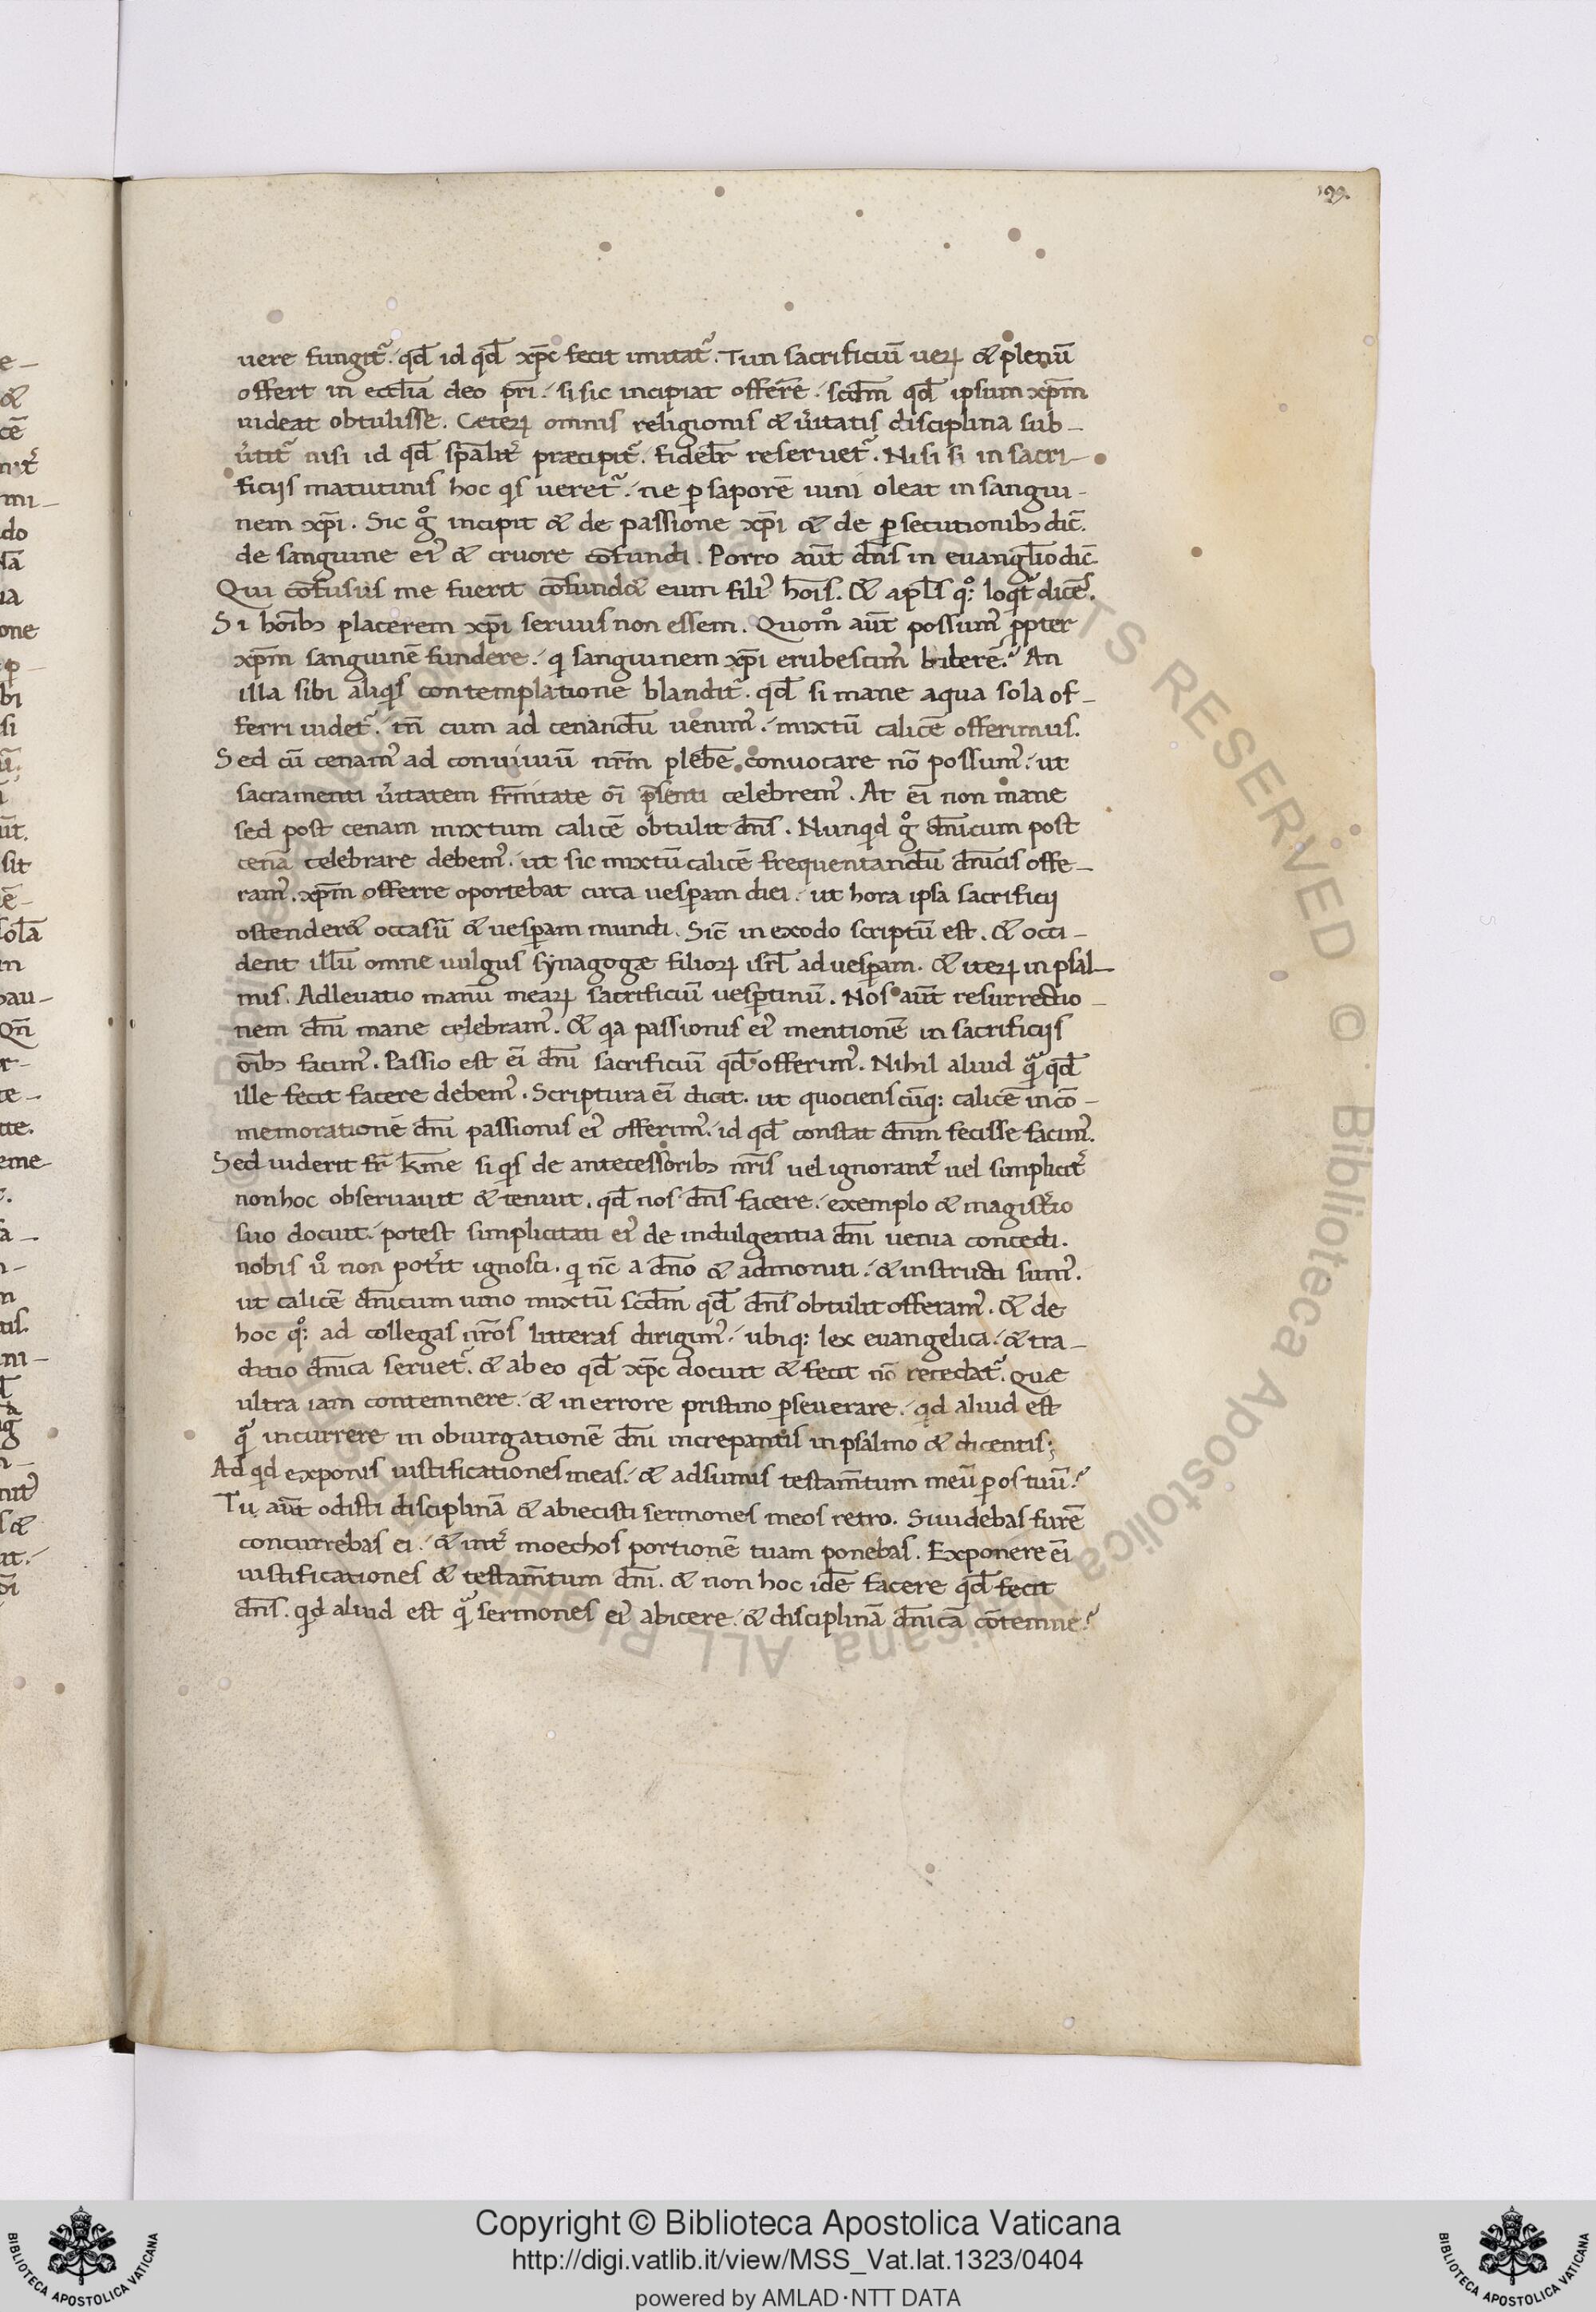 199.
uere fungit᷑. qđ id qđ xp̄c fecit imitat᷑. Tun sacrificiū ueꝝ & plenū
offert in eccƚia deo pr̄i. si sic incipiat offerre. scđm qđ ipsum xp̄m
uideat obtulisse. Ceteꝝ omnis religionis & ůitatis disciplina sub-
ůtit᷑ nisi id qđ sp̄alit᷑ præcipit᷑. fideƚr reseruet᷑. Nisi si in sacri-
ficijs matutinis hoc q̇s ueret᷑. ne ꝑ saporē uini oleat in sangui-
nem xp̄i. Sic g̊ incipit & de passione xp̄i & de ꝑsecutionibꝫ dic̄.
de sanguine ei᷒ & cruore cōfundi. Porro aūt dn̄s in euangƚio dic̄
Qui cōfusus me fuerit cōfund& eum fili᷒ hōis. & apƚs q̊: loqt᷑ dicēs.
Si hōibꝫ placerem xp̄i seruus non essem. Quom̊ aūt possum᷒ ꝓpter
xp̄m sanguinē fundere. q̇ sanguinem xp̄i erubescim᷒ bibere? An
illa sibi aliq̇s contemplatione blandit᷑. qđ si mane aqua sola of-
ferri uidet᷑. tn̄ cum ad cenandū uenim᷒. mixtū calicē offerimus.
Sed cū cenam᷒ ad conuiuiū nr̄m plebē conuocare nō possum᷒. ut
sacramenti ůitatem fr̄nitate oı̄ p̄senti celebrem᷒. At eı̄ non mane
sed post cenam mixtum calicē obtulit dn̄s. Nunq̇d g̊ dn̄icum post
cenā celebrare debem᷒. ut sic mixtū calicē frequentandū dn̄icis offe-
ram᷒. xp̄m offerre oportebat circa uesꝑam diei. ut hora ipsa sacrificij
ostender& occasū & uesꝑam mundi. Sic̄ in exodo scriptū est. & occi-
dent illū omne uulgus synagogæ filioꝝ isrƚ ad uesꝑam. & iteꝝ in psal-
mis. Adleuatio manū meaꝝ sacrificiū uesꝑtinū. Nos aūt resurrectio-
nem dn̄i mane celebram᷒. & q̇a passionis ei᷒ mentionē in sacrificijs
oīb; facim᷒. Passio est eı̄ dn̄i sacrificiū qđ offerim᷒. Nihil aliud qᷓ qđ
ille fecit facere debem᷒. Scriptura eı̄ dicit. ut quociens cūq: calicē in cō-
memorationē dn̄i passionis ei᷒ offerim᷒. id qđ constat dn̄m fecisse facim᷒.
Sed uiderit fr̄ k̄me si q̇s de antecessoribꝫ nr̄is uel ignorant᷑ uel simplicit᷑
non hoc obseruauit & tenuit. qđ nos dn̄s facere. exemplo & magist᷑io
suo docuit. potest simplicitati ei᷒ de indulgentia dn̄i uenia concedi.
nobis ů non pot᷑it ignosci. q̇ nc̄ a dn̄o & admoniti. & instructi sum᷒.
ut calicē dn̄icum uino mixtū scđm qđ dn̄s obtulit offeram᷒. & de
hoc q̊: ad collegas nr̄os litteras dirigim᷒. ubiq: lex euangelica. & tra-
ditio dn̄ica seruet᷑. & ab eo qđ xp̄c docuit & fecit nō recedat᷑. Quæ
ultra iam contemnere. & in errore pristino ꝑseuerare. q̇d aliud est
qᷓ incurrere in obiurgationē dn̄i increpantis in psalmo & dicentis;
Ad q̇d exponis iustificationes meas. & adsumis testam̄tum meū ꝑ os tuū?
Tu aūt odisti disciplinā & abiecisti sermones meos retro. Si uidebas furē
concurrebas ei. & int᷑ moechos portionē tuam ponebas. Exponere eı̄
iustificationes & testam̄tum dn̄i. & non hoc idē facere qđ fecit
dn̄s. q̇d aliud est qᷓ sermones ei᷒ abicere. & disciplinā dn̄icā cōtemne?
Copyright © Biblioteca Apostolica Vaticana
http://digi.vatlib.it/view/MSS_Vat.lat.1323/0404
powered by AMLAD·NTT DATA
BIBLIOTECA APOSTOLICA VATICANA
BIBLIOTECA APOSTOLICA VATICANA